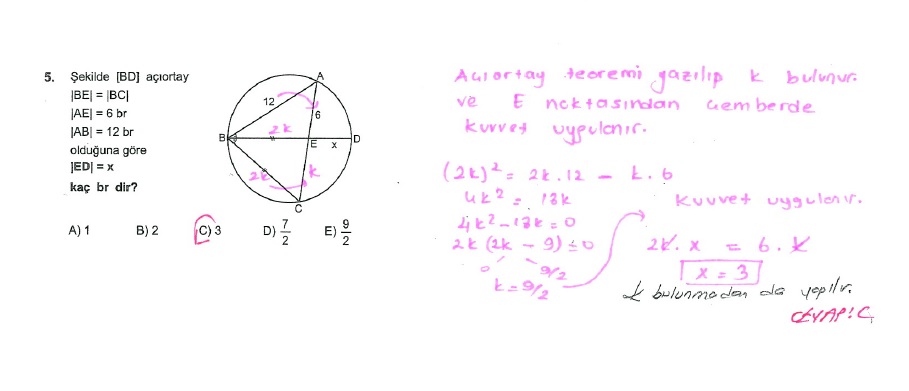 5. Şekilde [BD] açıortay
|BE| = |BC|
|AE| = 6 br
|AB| = 12 br
olduğuna göre
|ED| = x
kaç br dir?
A
12
6
2k
B
E
x
D
2k
k
C
A) 1 B) 2 C) 3 D) 7/2 E) 9/2
Açıortay teoremi yazılıp k bulunur.
ve E noktasından çemberde
kuvvet uygulanır.
(2k)² = 2k.12 - k.6
4k² = 18k
4k² - 18k = 0
2k (2k - 9) = 0
0 9/2
k = 9/2
Kuvvet uygulanır.
2k.x = 6.k
x = 3
k bulunmadan da yapılır.
CEVAP: C